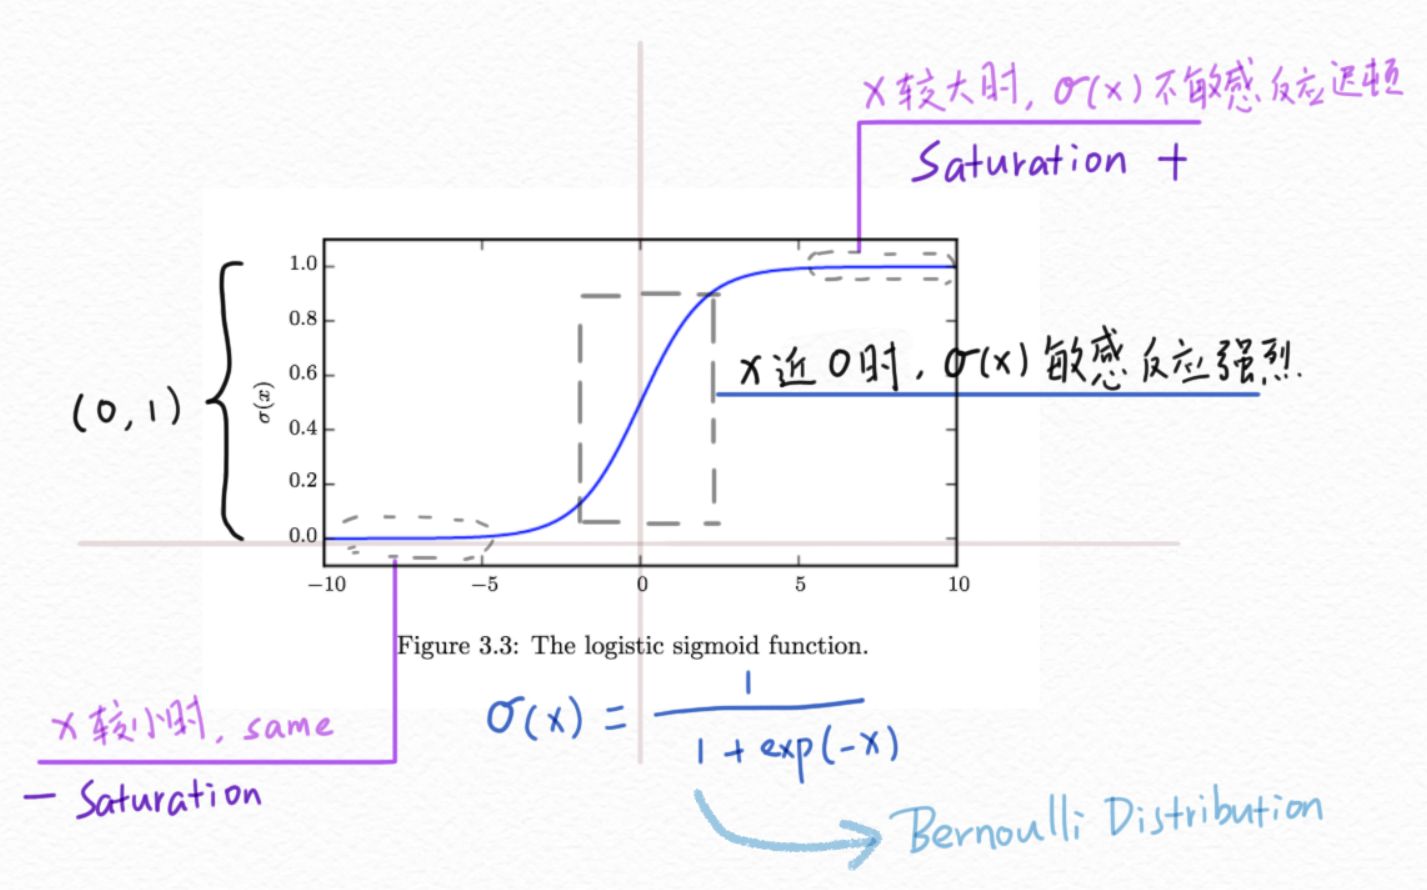 x 较大时, σ(x) 不敏感 反应迟顿
Saturation +
1.0
0.8
0.6
0.4
0.2
0.0
σ(x)
(0, 1)
x 近 0 时, σ(x) 敏感 反应强烈.
−10 −5 0 5 10
Figure 3.3: The logistic sigmoid function.
x 较小时, same
− Saturation
σ(x) = 1 / 1 + exp(-x)
Bernoulli Distribution